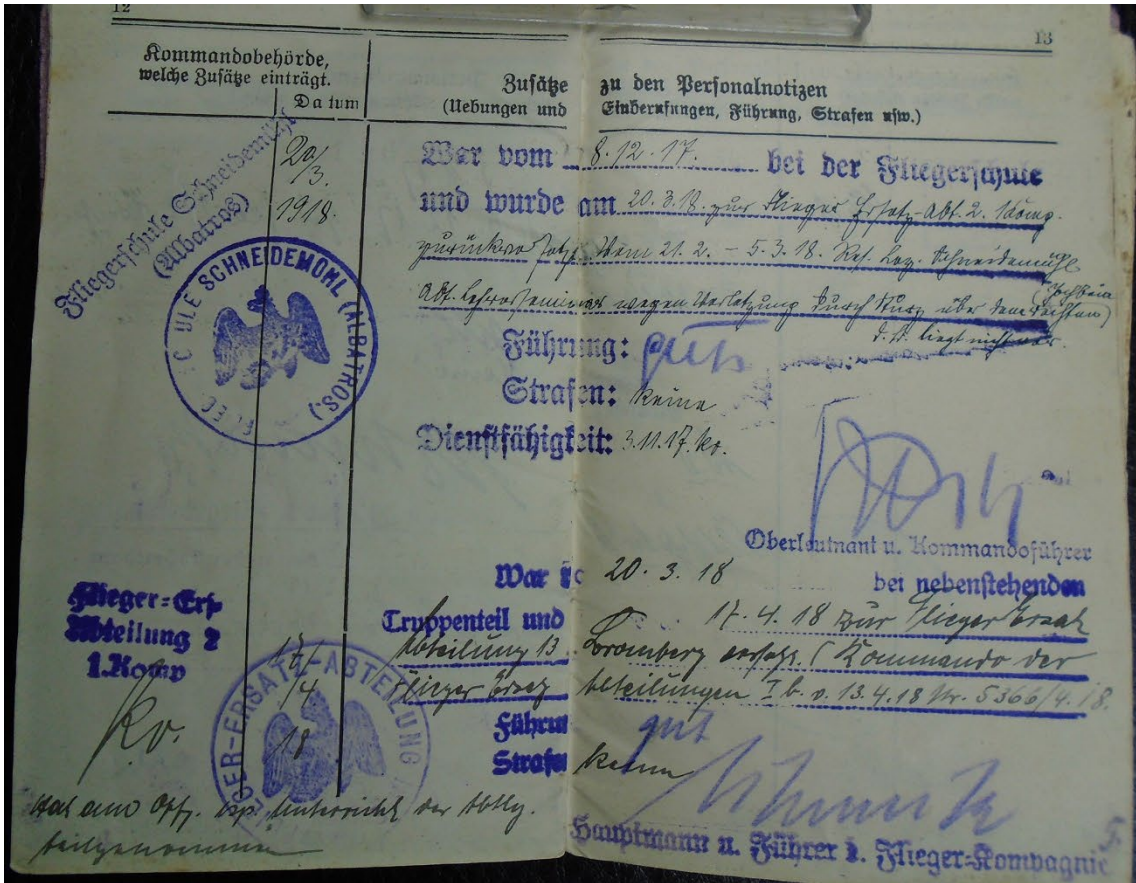 12
13
Kommandobehörde,
welche Zusätze einträgt.
Datum
Zusätze zu den Personalnotizen
(Uebungen und Einberufungen, Führung, Strafen usw.)
Fliegerschule Schneidemühl
(Albatros)
20/3.
1918.
War vom 8.12.17. bei der Fliegerschule
und wurde am 20.3.18. zur Flieger Ersatz-Abt. 2. Komp.
zurückversetzt. Vom 21.2. – 5.3.18. Res. Laz. Schneidemühl
Abt. wegen Verletzung durch Sturz
liegt nicht vor.
SCHNEIDEMÜHL (ALBATROS.)
Führung: gut
Strafen: keine
Dienstfähigkeit: 3.11.17. kv.
Oberleutnant u. Kommandoführer
Flieger-Ers
Abteilung 2
1. Komp
Kv.
17/4
18
ER-ERSATZ-ABTEILUNG
War 20.3.18 bei nebenstehenden
Truppenteil und 17.4.18 zur Flieger Ersatz
Abteilung 13 Bromberg versetzt. (Kommando der
Flieger Ersatz Abteilungen I b. v. 13.4.18 Nr. 5366/4.18.
Führun gut
Strafe keine
Hat am Unterricht der Abtlg.
teilgenommen
Hauptmann u. Führer d. Flieger-Kompagnie